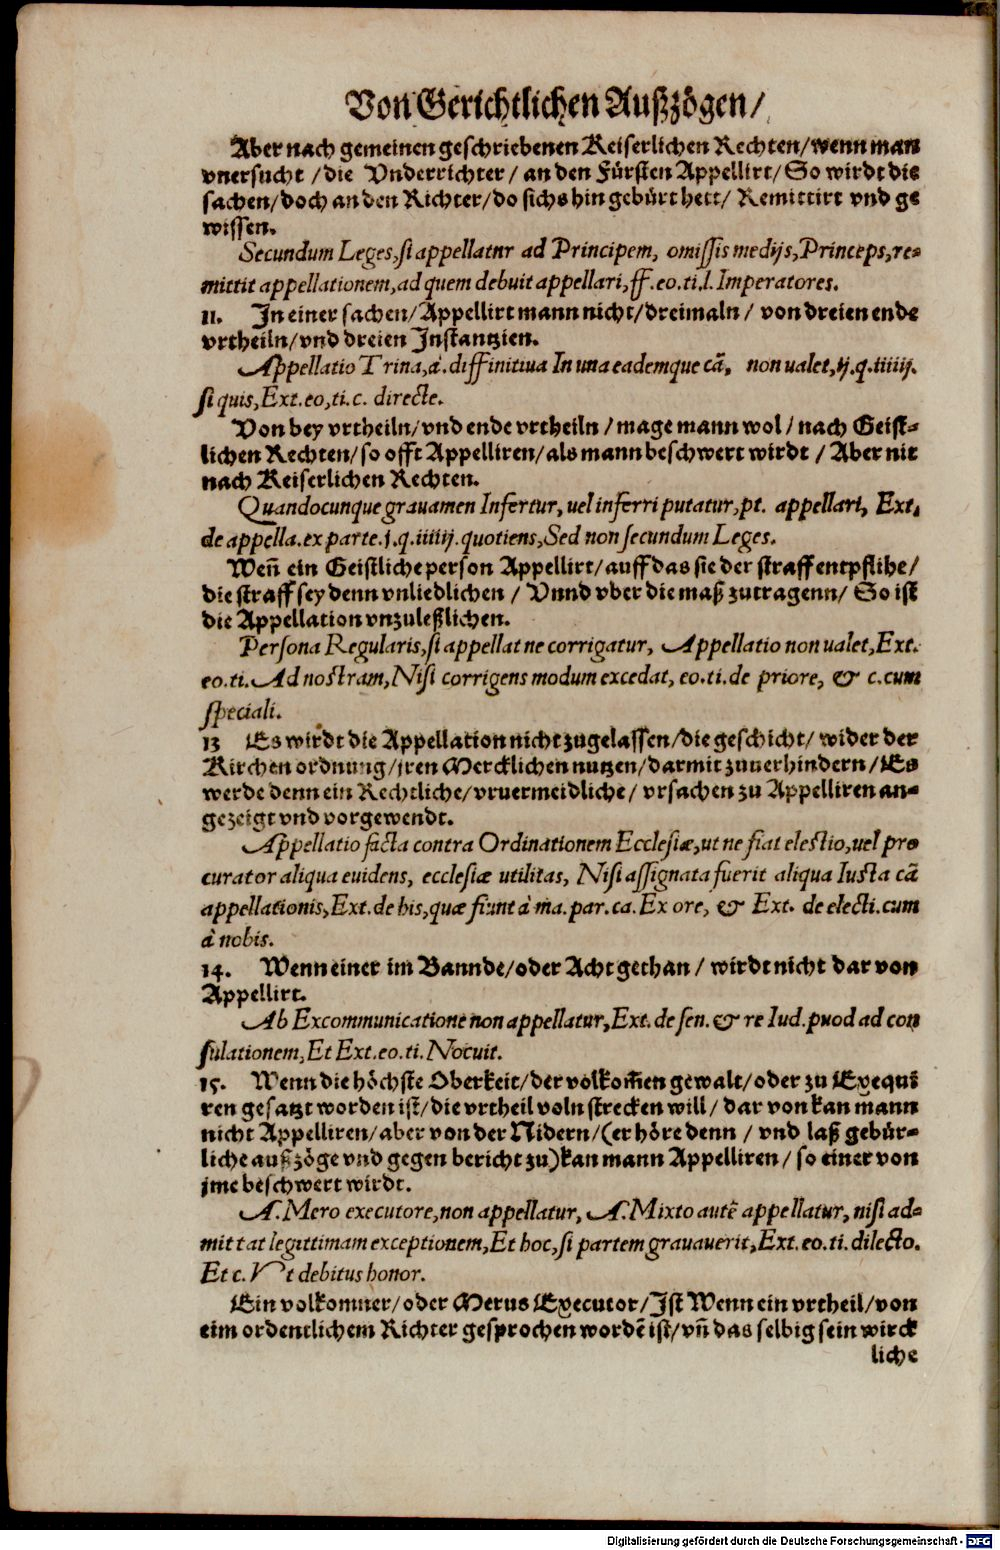 Von Gerichtlichen Außzögen/
Aber nach gemeinen geschriebenen Keiserlichen Rechten/wenn man
vnersucht /die Vnderrichter/ an den Fürsten Appellirt/ So wirdt die
sachen/doch an den Richter/do sichs hin gebürt hett/ Remittirt vnd ge
wissen.
Secundum Leges, si appellatnr ad Principem, omissis medijs, Princeps, re-
mittit appellationem, ad quem debuit appellari, ff. eo. ti. l. Imperatores.
11. In einer sachen/Appellirt mann nicht/dreimaln/ von dreien ende
vrtheiln/vnd dreien Instantzien.
Appellatio Trina, à. diffinitiua In una eademque cã, non ualet, ij. q. iiiiij.
si quis, Ext. eo, ti. c. directe.
Von bey vrtheiln/vnd ende vrtheiln/ mage mann wol/ nach Geist-
lichen Rechten/so offt Appelliren/als mann beschwert wirdt / Aber nit
nach Keiserlichen Rechten.
Quandocunque grauamen Infertur, uel inferri putatur, pt. appellari, Ext.
de appella. ex parte. j. q. iiiiij. quotiens, Sed non secundum Leges.
Weñ ein Geistliche person Appellirt/auff das sie der straff entpflihe/
die straff sey denn vnliedlichen / Vnnd vber die maß zutragenn/ So ist
die Appellation vnzuleßlichen.
Persona Regularis, si appellat ne corrigatur, Appellatio non ualet, Ext.
eo. ti. Ad nostram, Nisi corrigens modum excedat, eo. ti. de priore, & c. cum
speciali.
13 Es wirdt die Appellation nicht zugelassen/die geschicht/ wider der
Kirchen ordnung/jren Mercklichen nutzen/darmit zuuerhindern/Es
werde denn ein Rechtliche/vruermeidliche/ vrsachen zu Appelliren an-
gezeigt vnd vorgewendt.
Appellatio facta contra Ordinationem Ecclesiæ, ut ne fiat electio, uel pro
curator aliqua euidens, ecclesiæ utilitas, Nisi assignata fuerit aliqua Iusta cã
appellationis, Ext. de his, quæ fiunt à ma. par. ca. Ex ore, & Ext. de electi. cum
à nobis.
14. Wenn einer im Bannde/oder Acht gethan/ wirdt nicht dar von
Appellirt.
Ab Excommunicatione non appellatur, Ext. de sen. & re Iud. puod ad con
sulationem, Et Ext. eo. ti. Nocuit.
15. Wenn die höchste Oberkeit/der volkom̃en gewalt/oder zu Exequi
ren gesatzt worden ist/die vrtheil voln strecken will/ dar von kan mann
nicht Appelliren/aber von der Nidern/(er höre denn / vnd laß gebür-
liche außzöge vnd gegen bericht zu)kan mann Appelliren/ so einer von
jme beschwert wirdt.
A. Mero executore, non appellatur, A. Mixto autē appellatur, nisi ad-
mittat legittimam exceptionem, Et hoc, si partem grauauerit, Ext. eo. ti. dilecto.
Et c. Vt debitus honor.
Ein volkomner/oder Merus Executor/Ist Wenn ein vrtheil/von
eim ordentlichem Richter gesprochen wordē ist/vñ das selbig sein wirck
liche
Digitalisierung gefördert durch die Deutsche Forschungsgemeinschaft - DFG